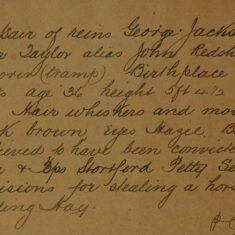 Pair of reins George Jacks
Taylor alias John Redsh
(tramp) Birthplace
age 36 height 5ft 4½
Hair whiskers and mou
k brown, Eyes Hazel, B
ieved to have been convict
& Bps Stortford Petty Se
isions for stealing a hors
ding Hay.